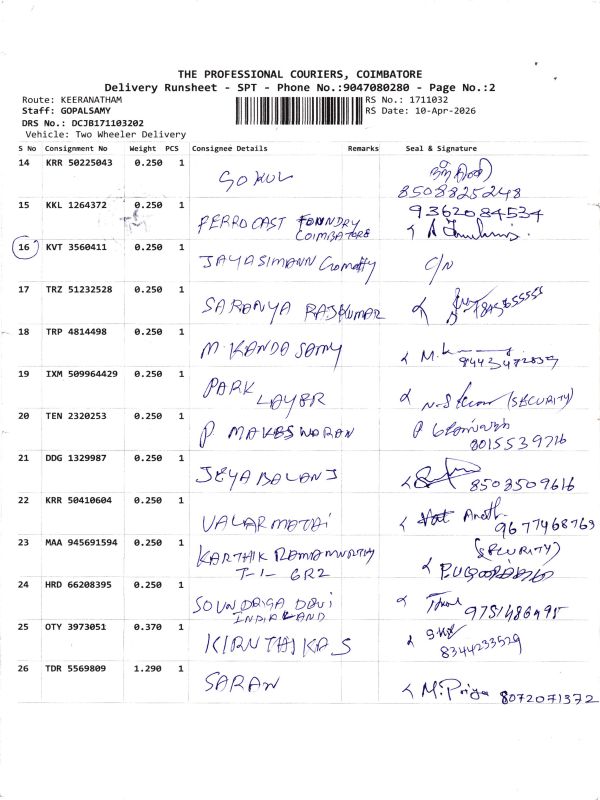 THE PROFESSIONAL COURIERS, COIMBATORE
Delivery Runsheet - SPT - Phone No.:9047080280 - Page No.:2
Route: KEERANATHAM
RS No.: 1711032
Staff: GOPALSAMY
RS Date: 10-Apr-2026
DRS No.: DCJB171103202
Vehicle: Two Wheeler Delivery
S No Consignment No Weight PCS Consignee Details Remarks Seal & Signature
14 KRR 50225043 0.250 1
GOKUL
8508825248
15 KKL 1264372 0.250 1 9362084534
FERROCAST FOUNDRY
COIMBATORE
16 KVT 3560411 0.250 1
JAYASIMANN C/N
17 TRZ 51232528 0.250 1
SARANYA RAJKUMAR
18 TRP 4814498 0.250 1
M. KANDASAMY M.
19 IXM 509964429 0.250 1
PARK
LAYER (SECURITY)
20 TEN 2320253 0.250 1
P. MAKESWARAN
8015539716
21 DDG 1329987 0.250 1
JEYABALANJ 8508509616
22 KRR 50410604 0.250 1
VALARMATHI
9677468763
23 MAA 945691594 0.250 1 (SECURITY)
KARTHIK RAMAMURTHY
T-1- GR2
24 HRD 66208395 0.250 1
SOUNDRIGA DEVI
INDIALAND
25 OTY 3973051 0.370 1
KIRNTHIKA S
8344233529
26 TDR 5569809 1.290 1
SARAN M. Priya 8072071372